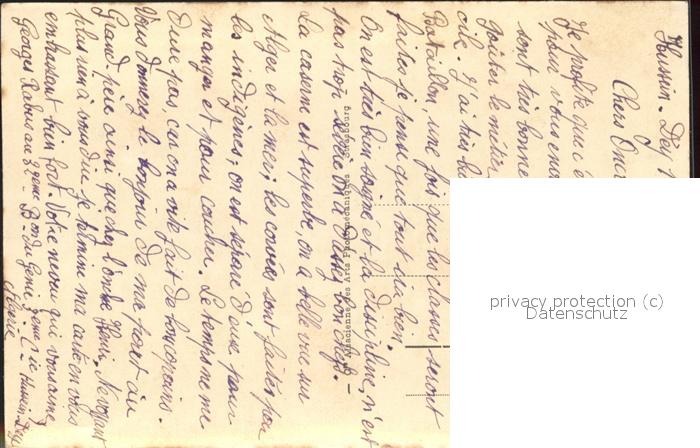 Hussein-Dey 1
Chers Onc
Je profite que j'é
pour vous env
sont très bonne
goûter le métier
cile. J'ai très b
Bataillon, une fois que les classes seront
faites je pense que tout ira bien.
On est très bien soigné et la discipline, n'est
pas trop sévère on a assez
La caserne est superbe, on a belle vue sur
Alger et la mer, les corvées sont faites par
les indigènes, on est séparé d'eux pour
manger et pour coucher. Le temps ne me
dure pas, car on a vite fait de
Vous donnerez le bonjour de ma part au
Grand père ainsi que chez l'oncle Henri. Ne voyant
plus rien à vous dire je termine ma carte en vous
embrassant bien fort. Votre neveu qui vous aime,
Georges 32eme Bon du Génie 2eme Cie Hussein Dey
Algérie
privacy protection (c)
Datenschutz